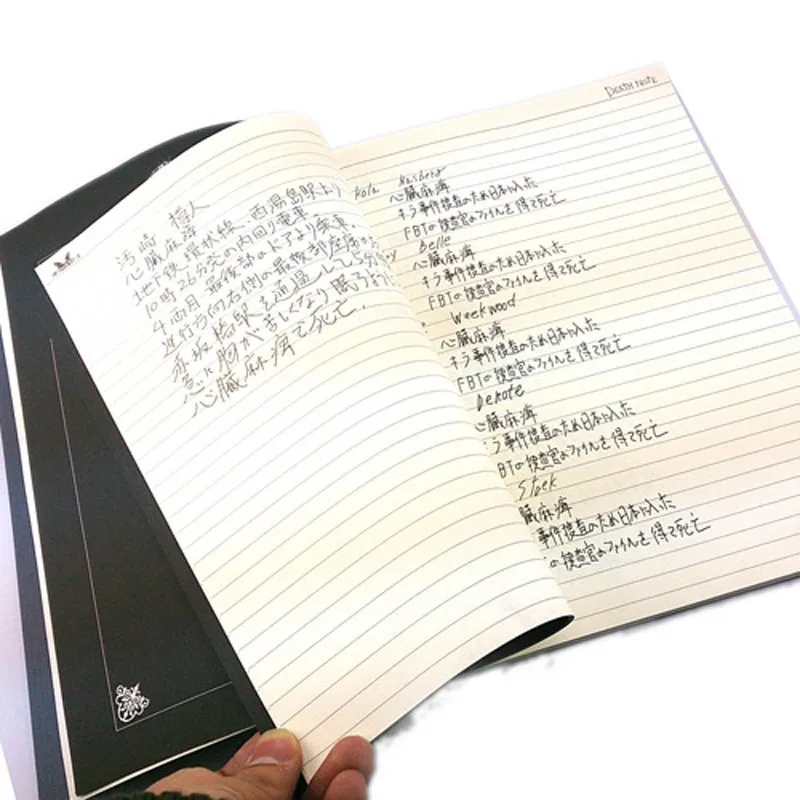 心臓麻痺
地下鉄環状線、西湯島駅より
10時26分発の内回り電車
4両目 最後部のドアより乗車
進行方向右側の最後部座席
赤坂橋駅を通過して
急に胸が苦しくなり眠るように
心臓麻痺で死亡.
DEATH NOTE
心臓麻痺
キラ事件捜査のため日本に入った
FBIの捜査官のファイルを得て死亡
Belle
心臓麻痺
キラ事件捜査のため日本に入った
FBIの捜査官のファイルを得て死亡
Weekwood
心臓麻痺
キラ事件捜査のため日本に入った
FBIの捜査官のファイルを得て死亡
Denote
臓麻痺
キラ事件捜査のため日本に入った
BIの捜査官のファイルを得て死亡
臓麻痺
事件捜査のため日本に入った
の捜査官のファイルを得て死亡